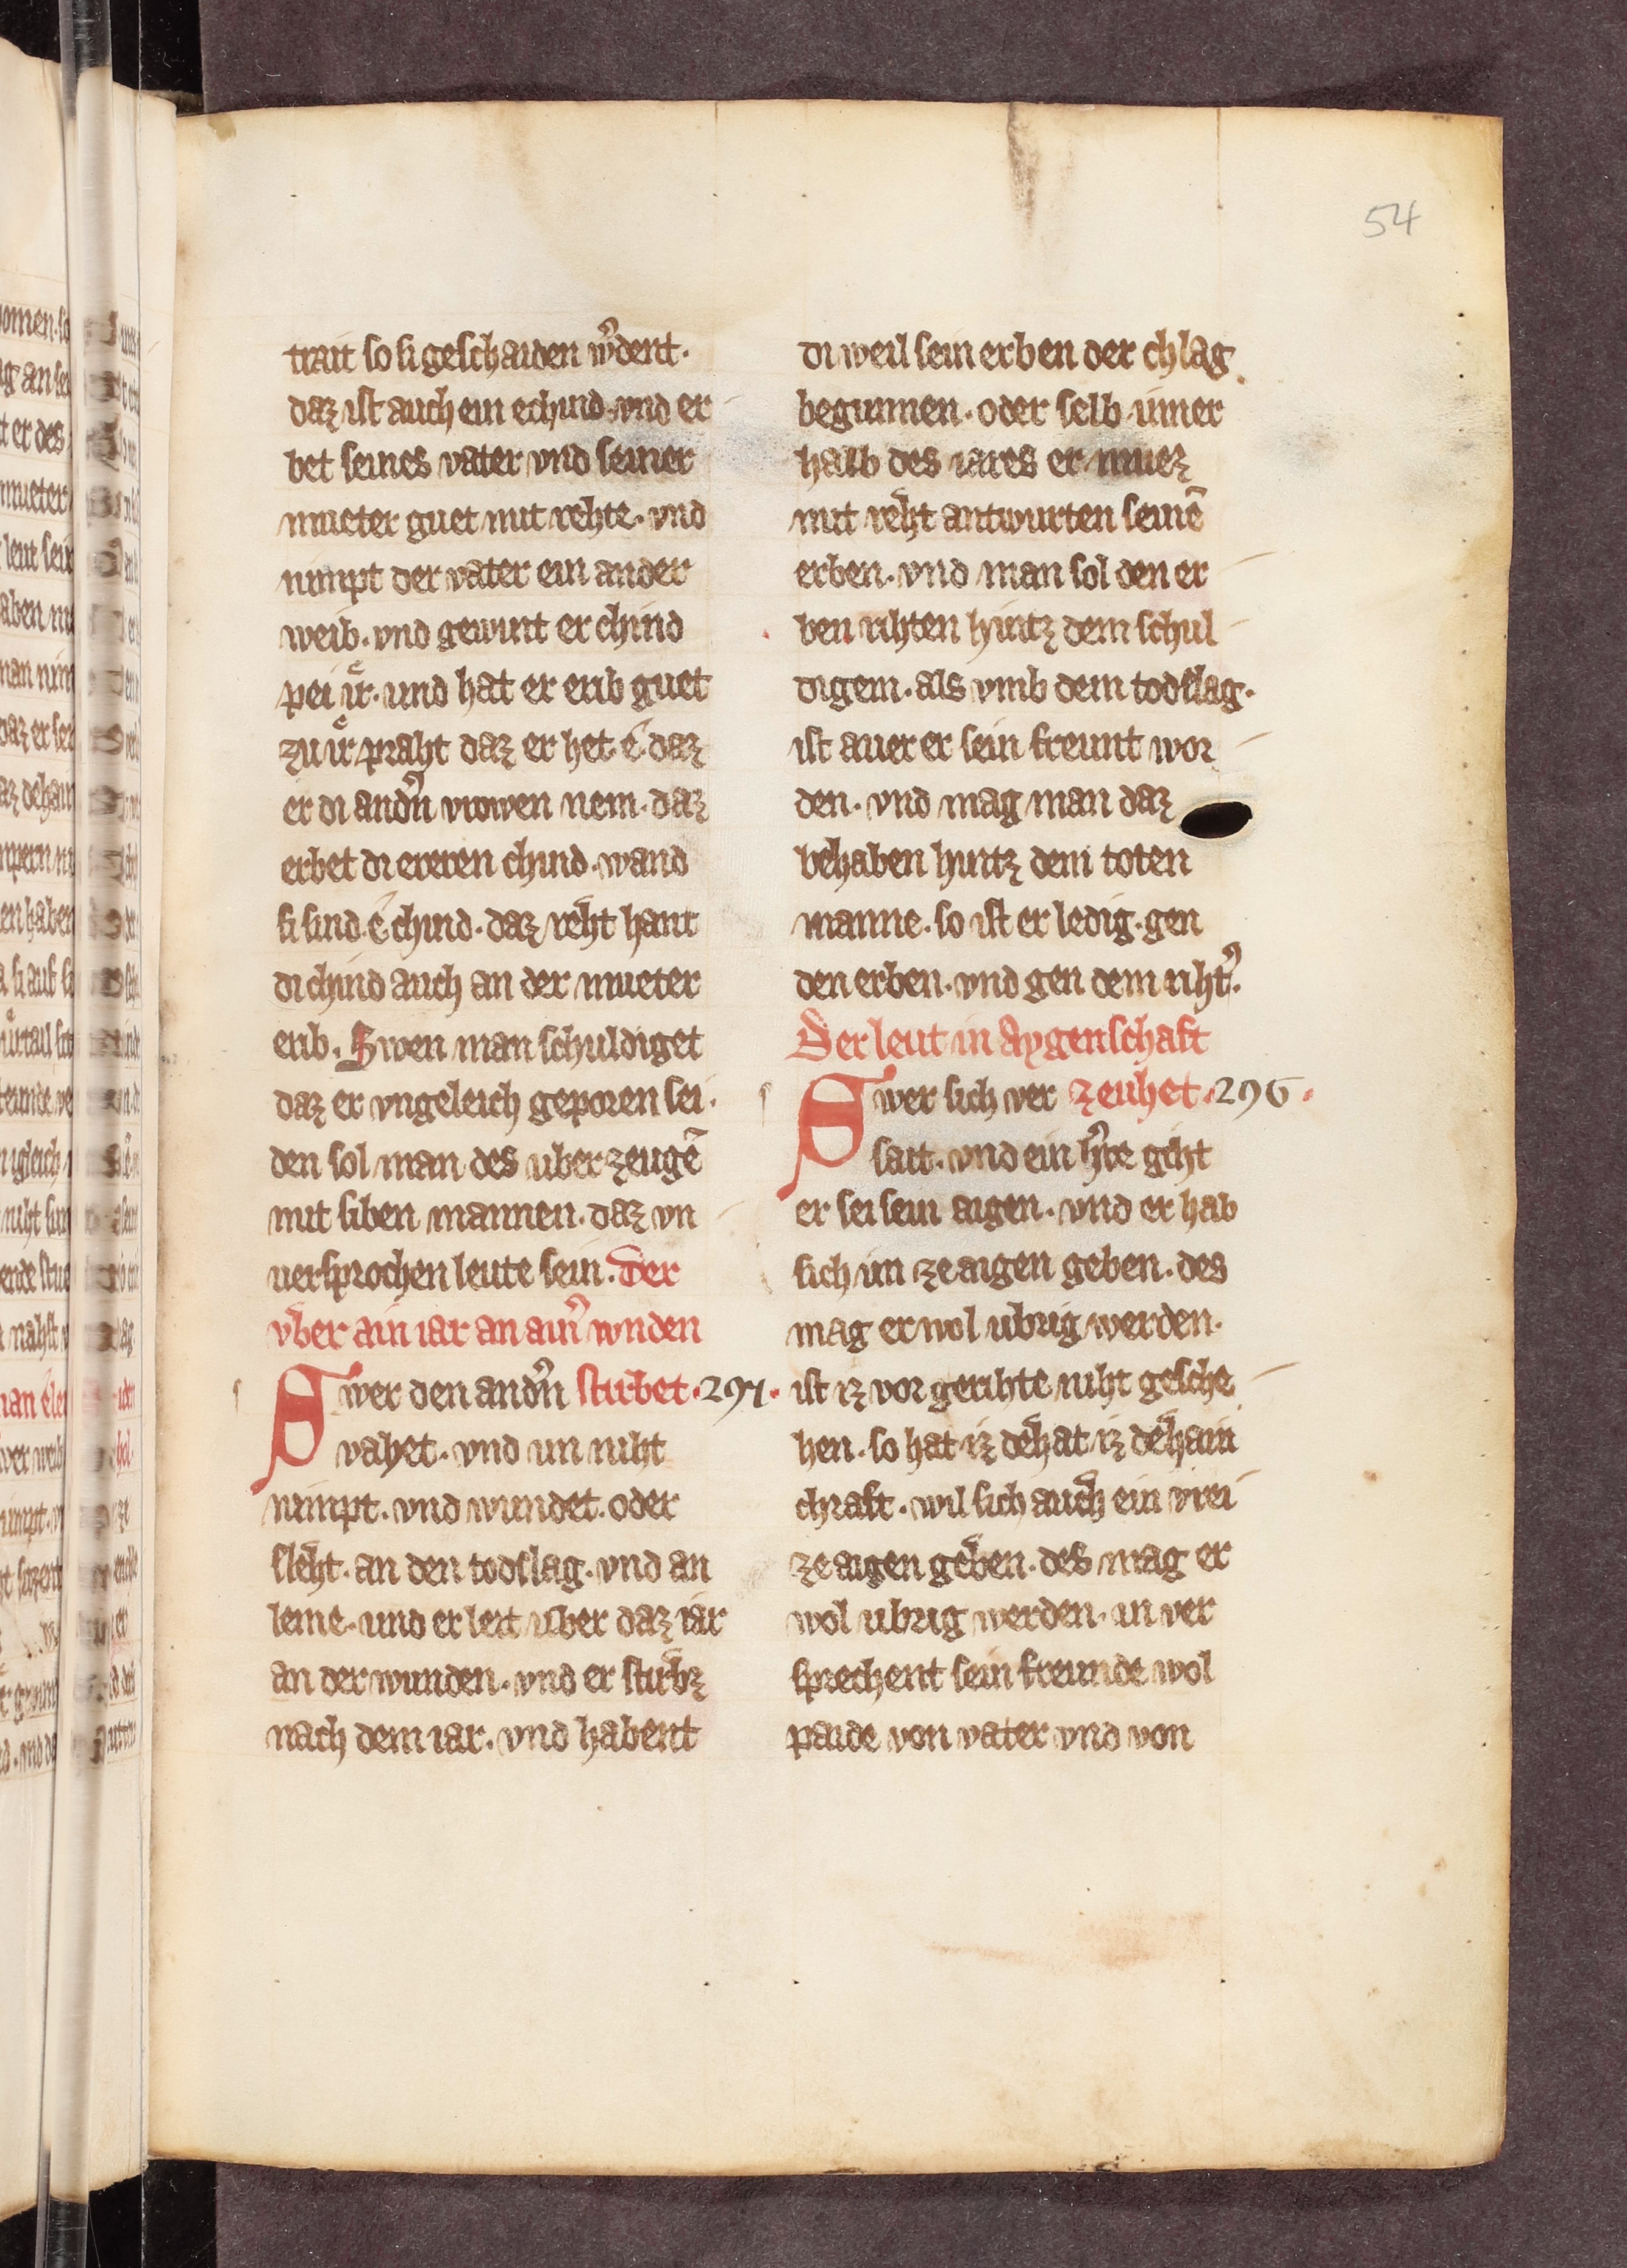 54
trait so si geschaiden w͛dent·
daz ist auch ein echind· vnd er
bet seines vater vnd seiner
mueter guet mit rehte· vnd
nimpt der vater ein ander
weib· vnd gewint er chind
pei uͤr· und hat er erib guet
zu uͤr praht daz er het ê daz
er di and͛n vrowen nem· daz
erbet di ereren chind· wand
si sind ê chind· daz reht hant
di chind auch an der mueter
erib. Swen man schuldiget
daz er vngeleich geporen sei·
den sol man des uber zeugē
mit siben mannen· daz vn
versprochen leute sein. Der
vber ain iar an ain͛ wnden
Swer den and͛n stirbet·297·
vahet· vnd un niht
nimpt· vnd wundet· oder
sleht· an den todslag· vnd an
leme· und er leit uber daz iar
an der wunden· vnd er stirbz
nach dem iar· vnd habent
di weil sein erben der chlag
begunnen· oder selb inner
halb des iares er muez
mit reht antwurten seinē
erben· vnd man sol den er
ben rihten hintz dem schul
digem· als vmb dem todslag·
ist auer er sein freunt wor
den· vnd mag man daz
behaben hintz dem toten
manne· so ist er ledig· gen
den erben· vnd gen dem riht͛·
Der leut in Aygenschaft
Swer sich ver zeuhet·296·
sait· vnd ein h͛re giht
er sei sein aigen· vnd er hab
sich im ze aigen geben· des
mag er wol ubrig werden·
ist iz vor gerihte niht gesche
hen· so hat iz dehat iz dehain
chraft· wil sich auch ein vrei
ze aigen geben· des mag er
wol ubrig werden· in ver
sprechent sein freunde wol
paide von vater vnd von